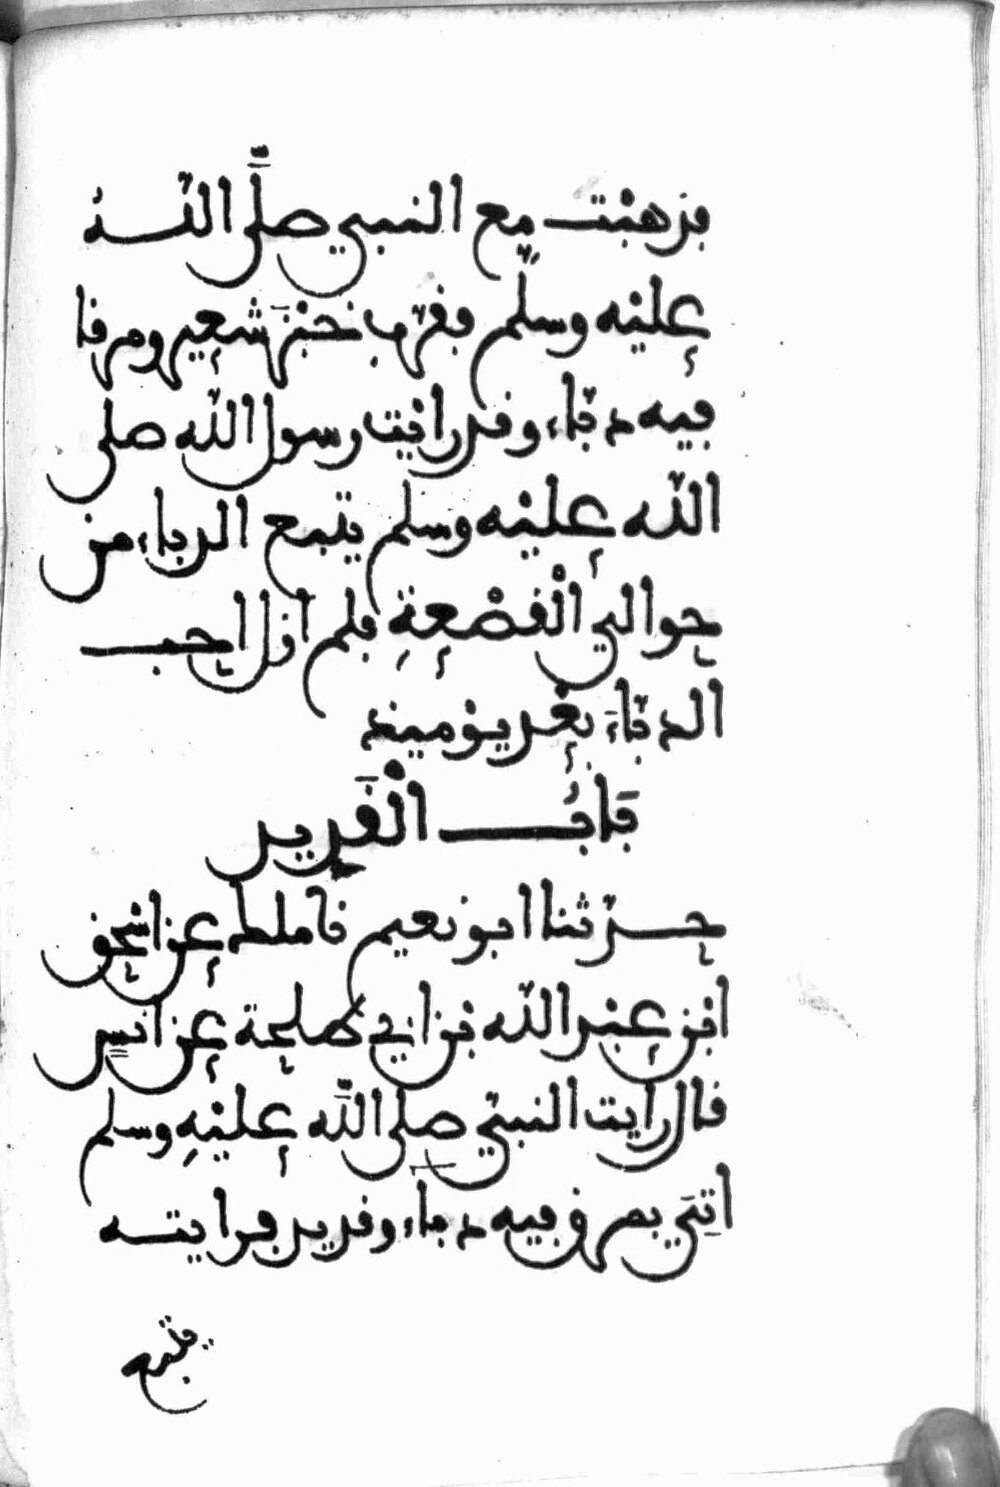 فذهبت مع النبي صلَّى اللّٰـهُ
عليْه وسلّم فقرّب خبْزَ شعير ومرقا
فيه دبّاء وقد رأيْت رسول اللّه صلى
اللّه عليْه وسلم يتبع الدباء من
حوالي الْقصْعةِ فلم ازل احب
الدبّاءَ بعْد يوْميذ
بَابُ الْقَدِيد
حدّثنا ابو نعيم نا ملك عن اسْحٰق
ابْن عبْد اللّه بْن ابي طلحة عن انس
قال رايت النبيّ صلى اللَّه عليْهِ وسلم
اتِيَ بمرق فيه دباء وقديد فرايته
يتبع